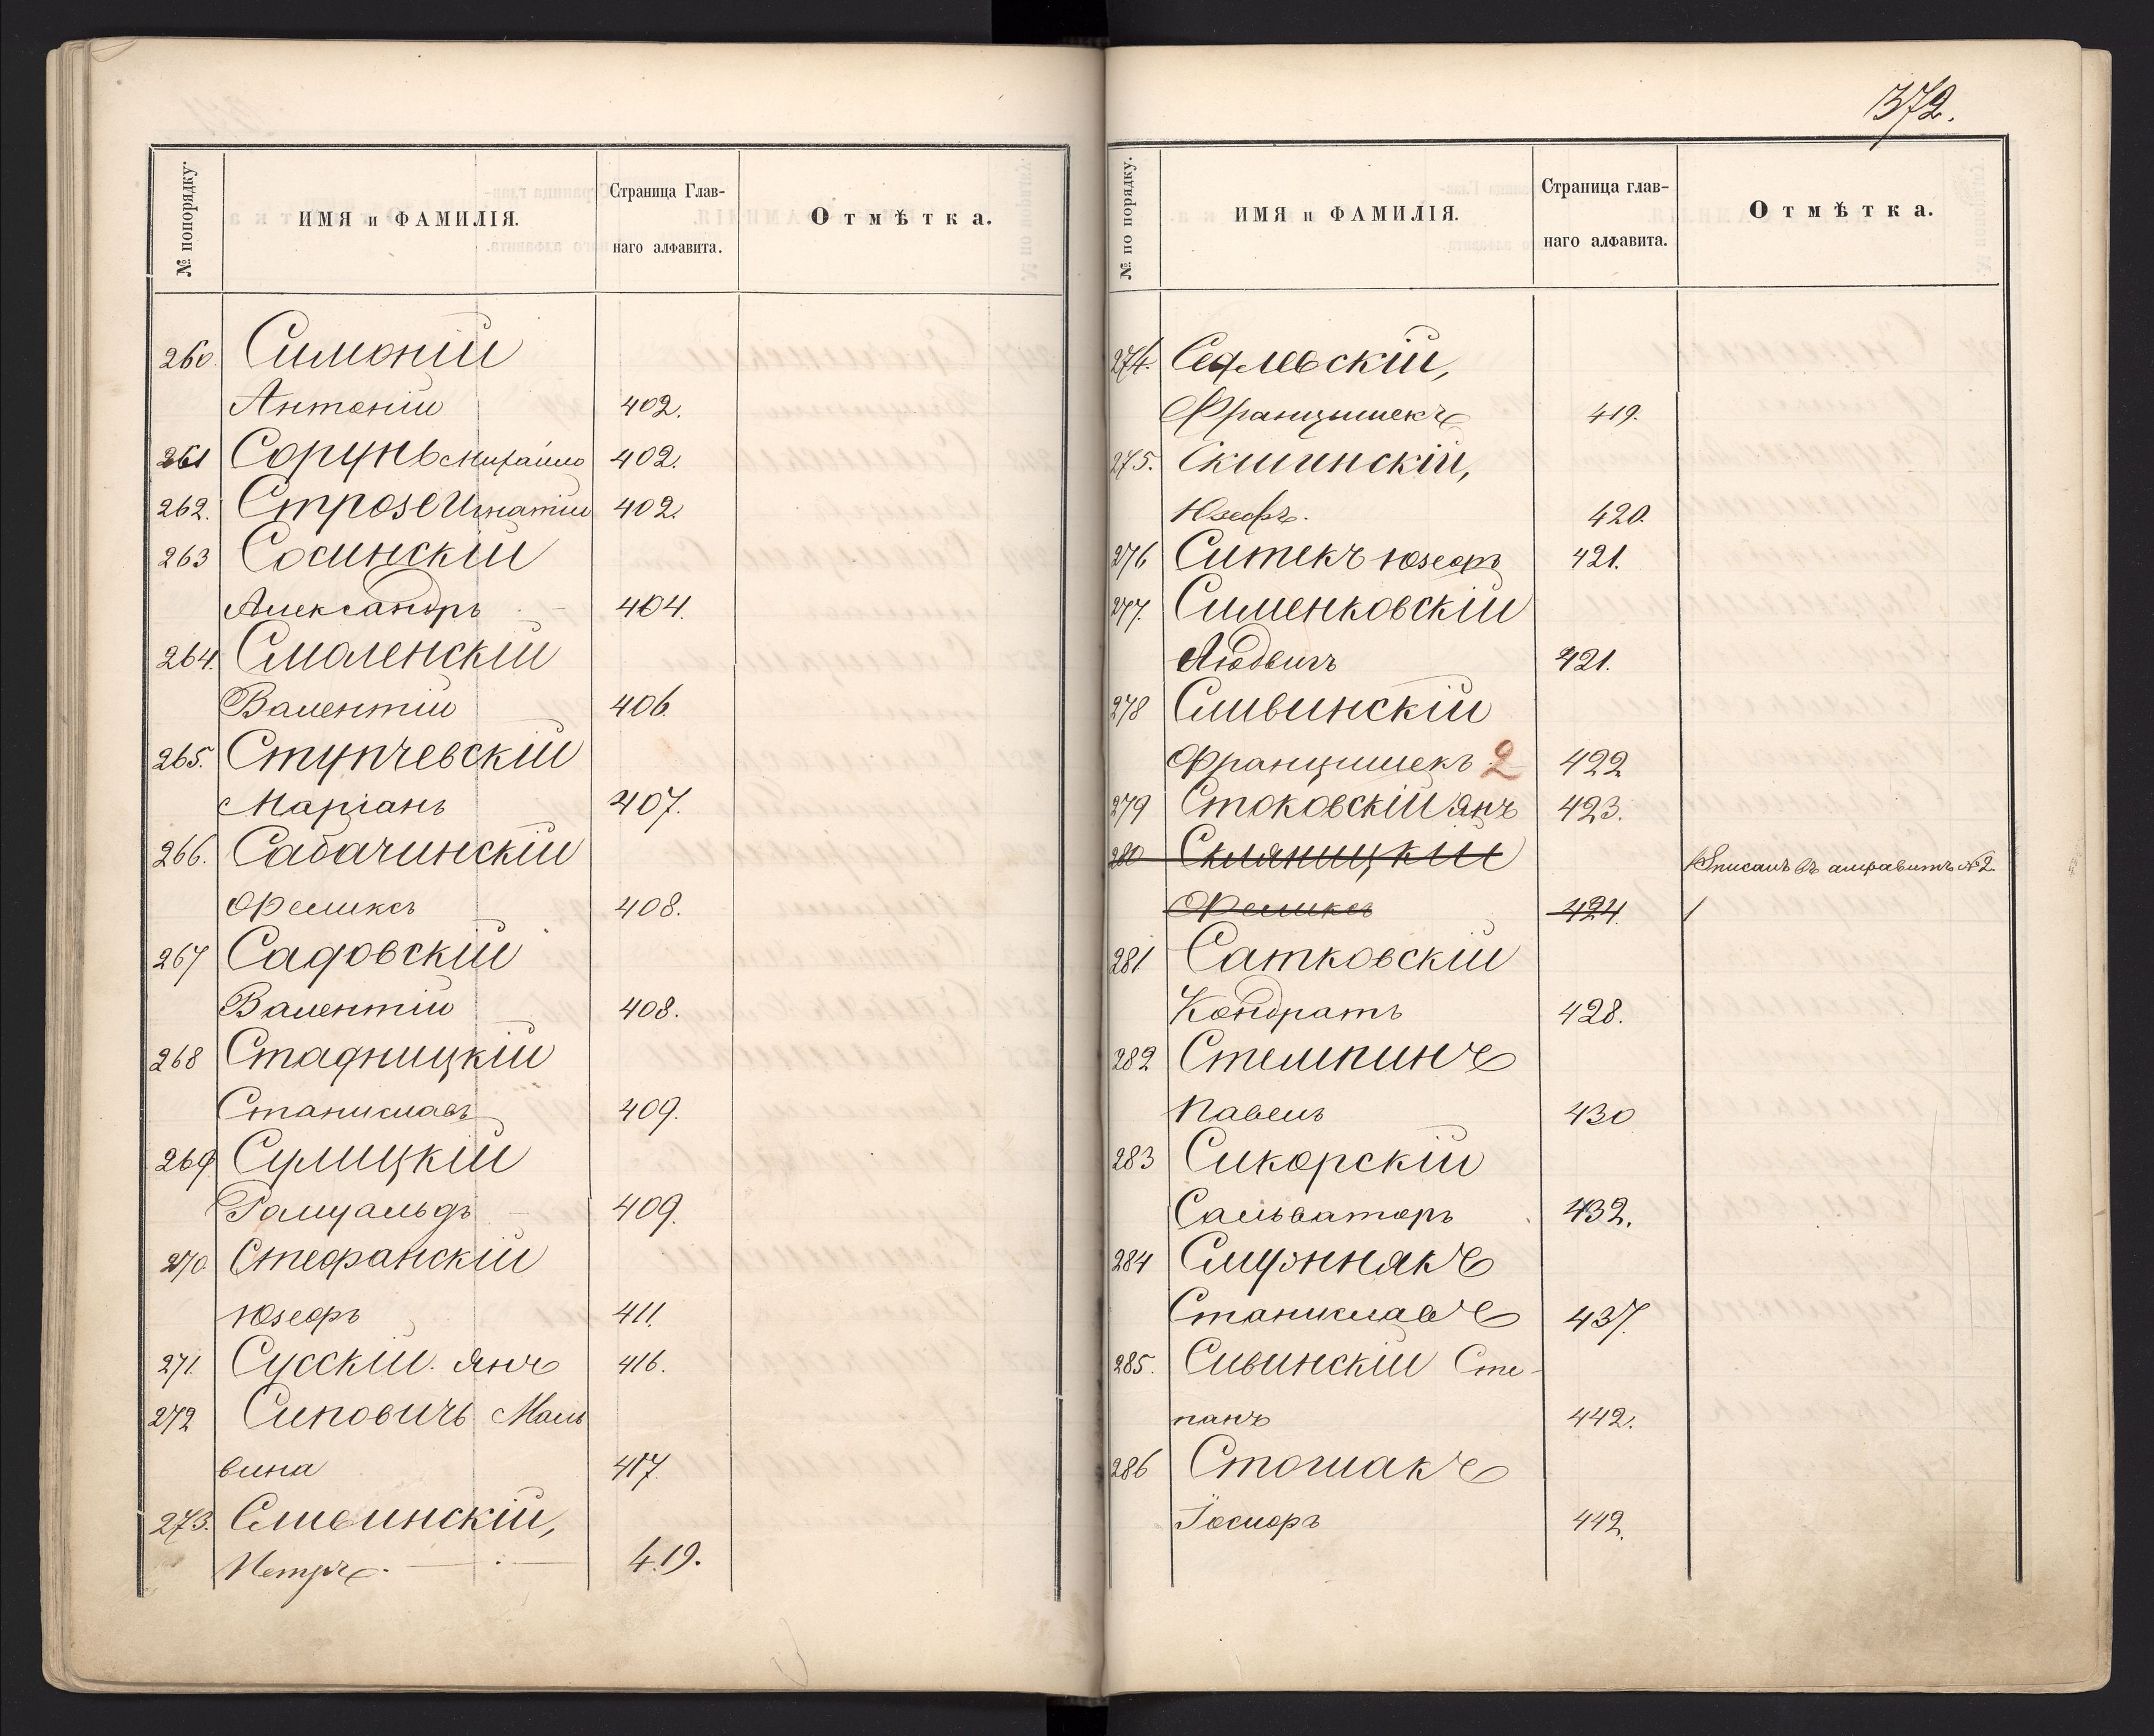 № попорядку.
ИМЯ и ФАМИЛІЯ.
Страница Глав-
наго алфавита.
Отмѣтка.
260. Симоній
Антоній 402.
261 Сорунь Михайло 402.
262. Строзе Игнатій 402.
263 Сосинскій
Александръ 404.
264. Смоленскій
Валентій 406.
265. Ступчевскій
Маріанъ 407.
266. Сабачинскій
Феликсъ 408.
267 Садовскій
Валентій 408.
268 Стадницкій
Станиславъ 409.
269 Сулицкій
Ромуальдъ 409.
270. Стефанскій
Юзефъ 411.
271. Сусскій. Янъ 416.
272 Сиповичъ Маль
вина 417.
273. Сливинскій,
Петръ. 419.
372.
№ по порядку.
ИМЯ и ФАМИЛІЯ.
Страница глав-
наго алфавита.
Отмѣтка.
274. Седлевскій,
Францишекъ 419.
275. Скшинскій,
Юзефъ. 420.
276 Ситекъ Юзефъ 421.
277. Сименковскій
Людвигъ 421.
278 Сливинскій
Францишекъ 2 422
279 Стоковскій Янъ 423.
280 Скляницкій
Вписанъ въ алфавитъ №2.
Феликсъ 424
281 Сатковскій
Кондратъ 428.
282 Стемпинъ
Павелъ 430
283 Сикорскій
Сальваторъ 432.
284
Станиславъ 437.
285. Сивинскій Сте-
панъ 442.
286 Стошакъ
Іосифъ 442.